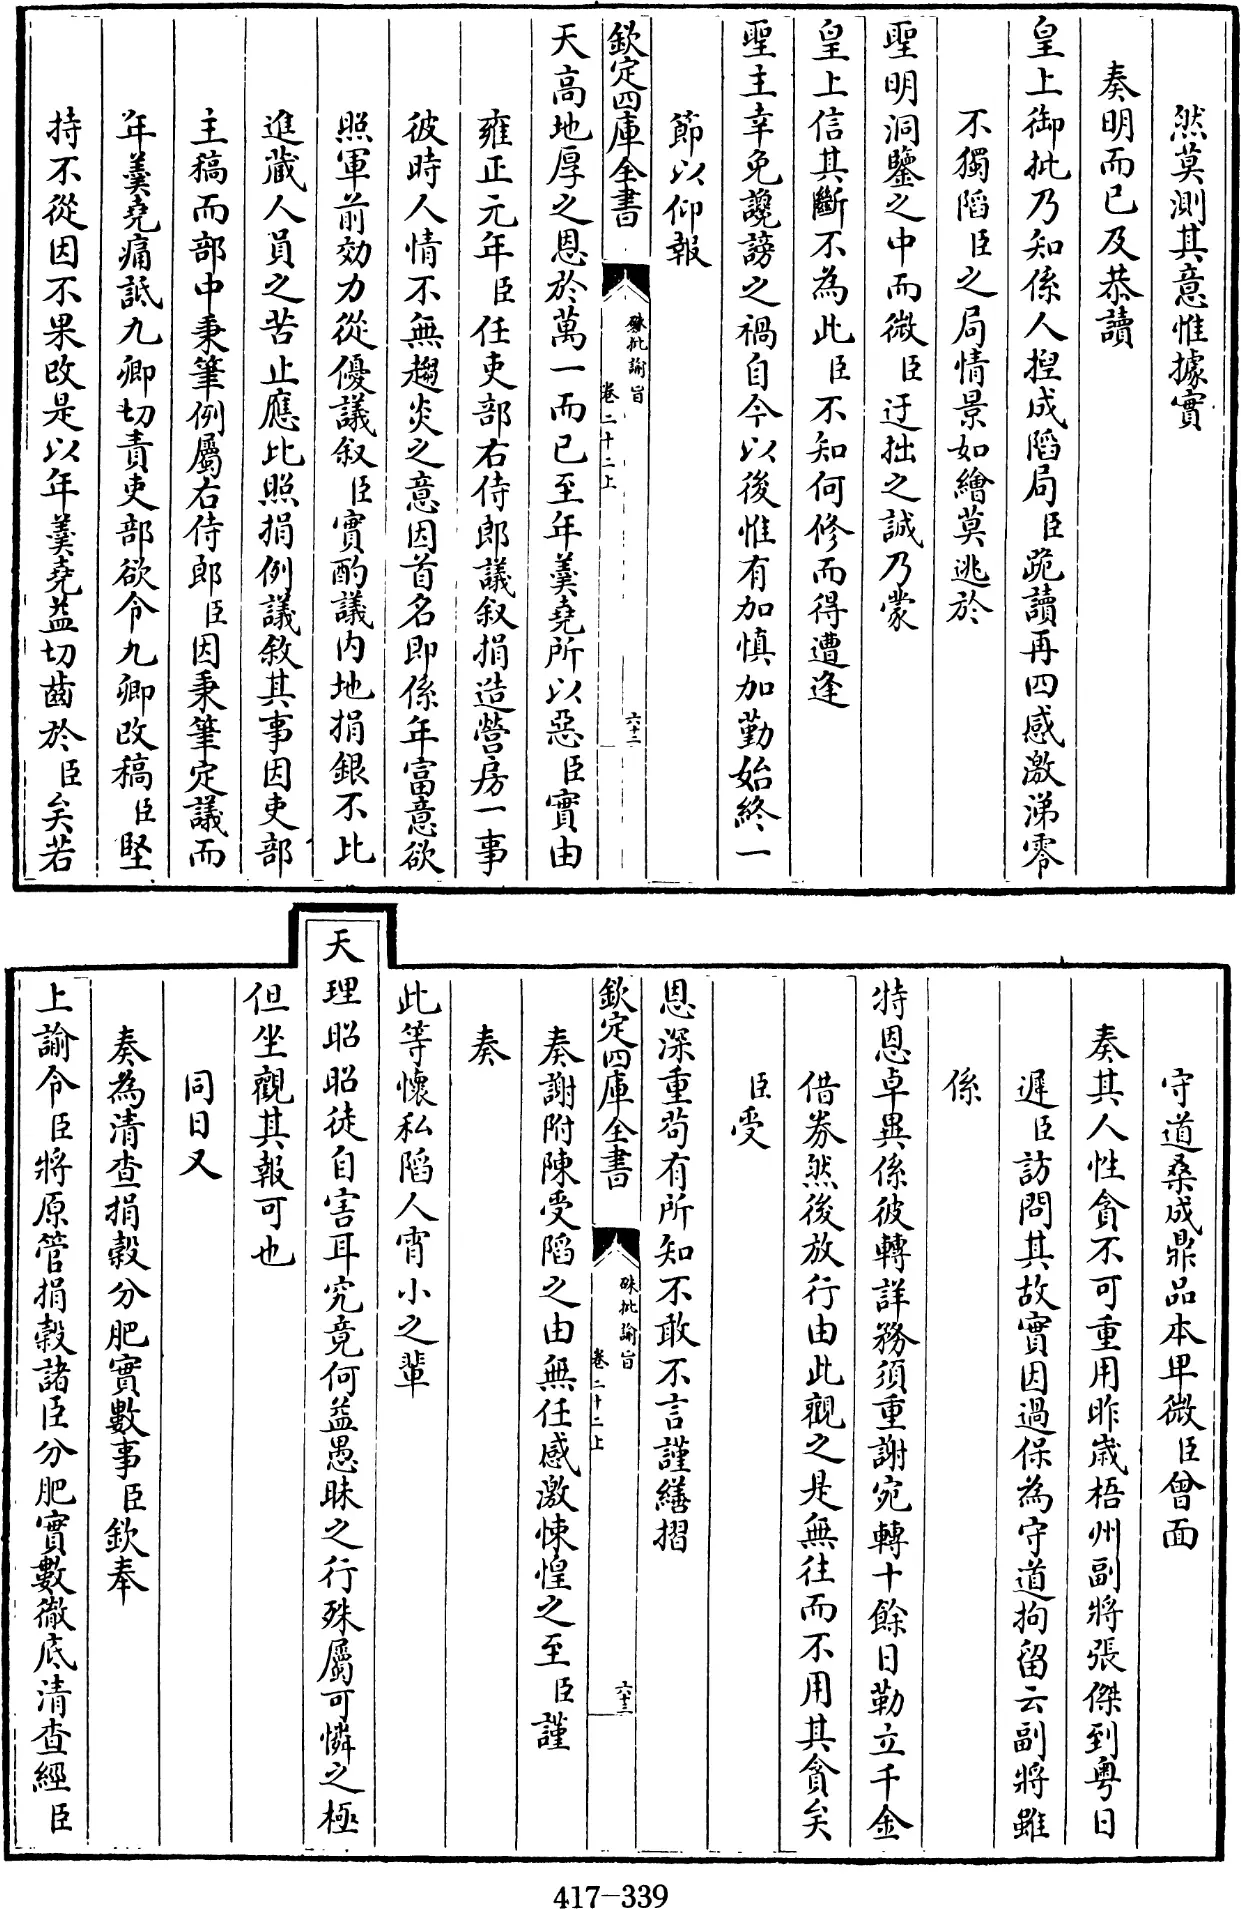 然莫測其意惟據實
奏明而已及恭讀
皇上御批乃知係人揑成陷局臣跪讀再四感激涕零
不獨陷臣之局情景如繪莫逃於
聖明洞鑒之中而微臣迂拙之誠乃蒙
皇上信其斷不為此臣不知何修而得遭逢
聖主幸免讒謗之禍自今以後惟有加慎加勤始終一
節以仰報
欽定四庫全書 硃批諭旨 卷二十二上 六十二
天高地厚之恩於萬一而已至年羹堯所以惡臣實由
雍正元年臣任吏部右侍郎議叙捐造營房一事
彼時人情不無趨炎之意因首名即係年富意欲
照軍前効力從優議叙臣實酌議内地捐銀不比
進藏人員之苦止應比照捐例議敘其事因吏部
主稿而部中秉筆例屬右侍郎臣因秉筆定議而
年羹堯痛詆九卿切責吏部欲令九卿改稿臣堅
持不從因不果改是以年羹堯益切齒於臣矣若
守道桑成鼎品本卑微臣曾面
奏其人性貪不可重用昨歲梧州副將張傑到粤日
遲臣訪問其故實因過保為守道拘留云副將雖
係
特恩卓異係彼轉詳務須重謝宛轉十餘日勒立千金
借券然後放行由此觀之是無往而不用其貪矣
臣受
恩深重苟有所知不敢不言謹繕摺
欽定四庫全書 硃批諭旨 卷二十二上 六十三
奏謝附陳受陷之由無任感激悚惶之至臣謹
奏
此等懷私陷人宵小之輩
天理昭昭徒自害耳究竟何益愚昧之行殊屬可憐之極
但坐觀其報可也
同日又
奏為清查捐穀分肥實數事臣欽奉
上諭令臣將原管捐穀諸臣分肥實數徹底清查經臣
417-339